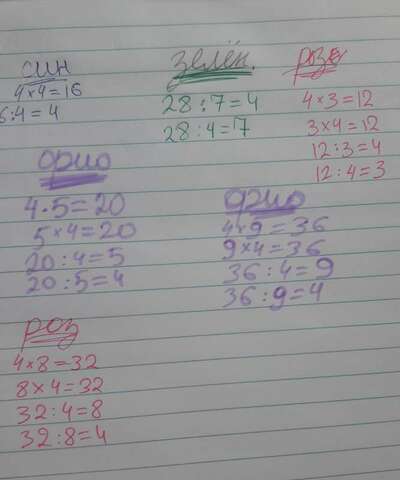 син
4×4=16
6:4=4
зелён.
28:7=4
28:4=7
розе
4×3=12
3×4=12
12:3=4
12:4=3
фрио
4·5=20
5×4=20
20:4=5
20:5=4
фрио
4×9=36
9×4=36
36:4=9
36:9=4
роз
4×8=32
8×4=32
32:4=8
32:8=4